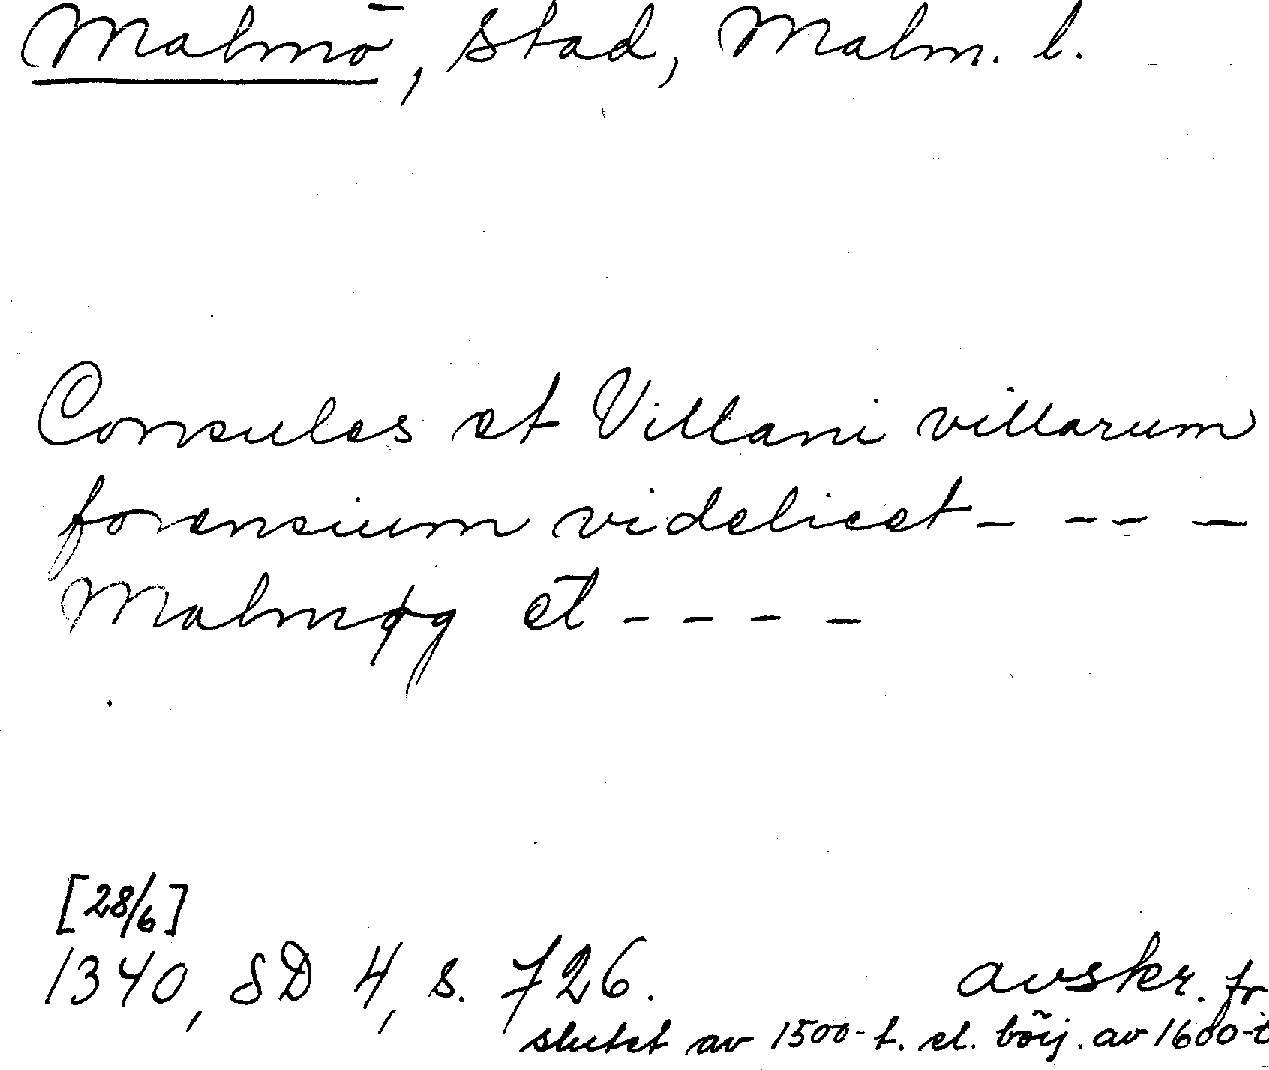 Malmö, stad, Malm. l.
Consules et Villani villarum
forensium videlicet - - - -
Malmøg et - - - -
[28/6]
1340, SD 4, s. 726. avskr. fr
slutet av 1500-t. el. börj. av 1600-t